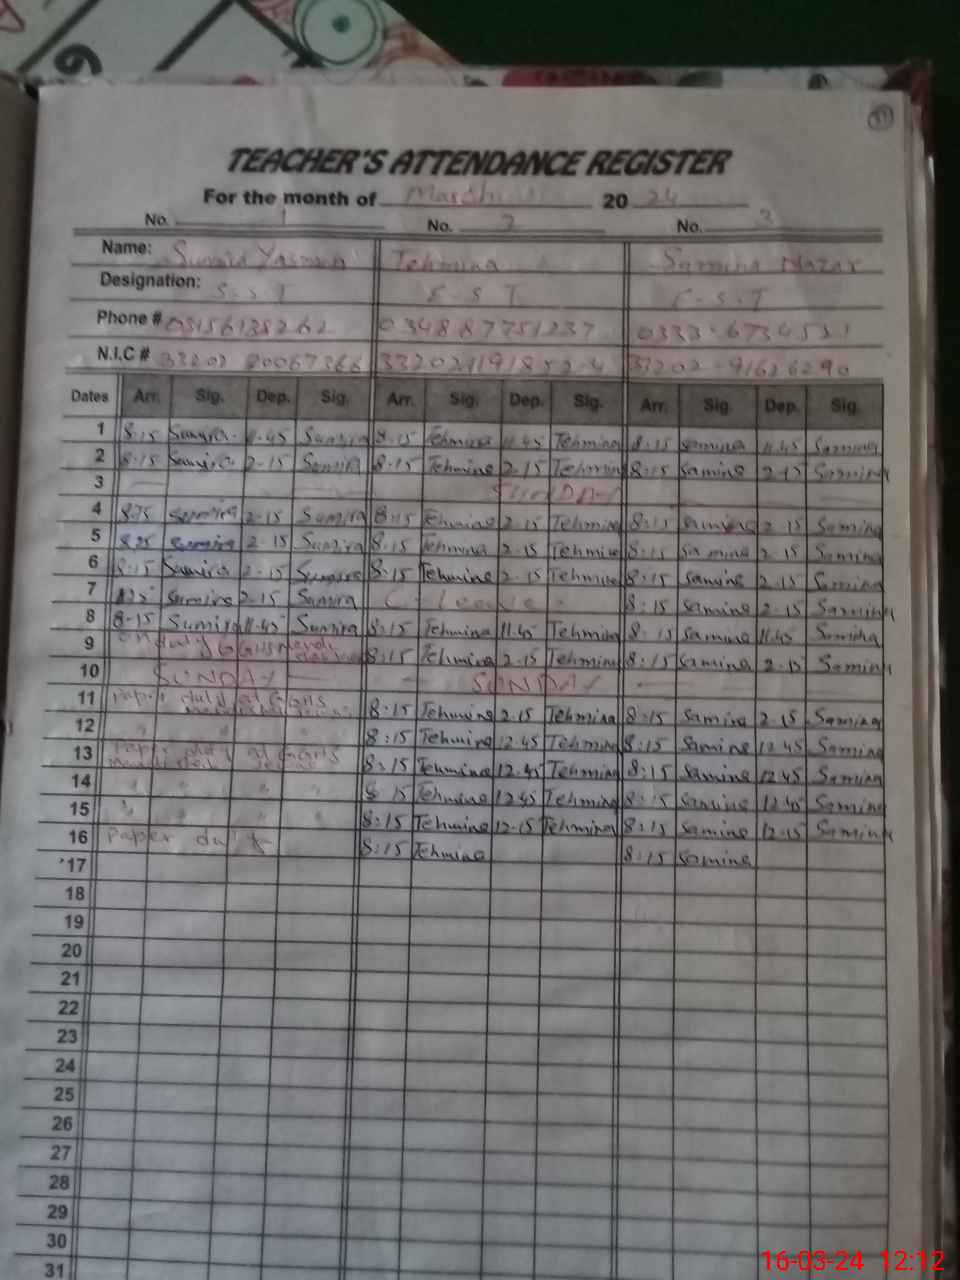 TEACHER'S ATTENDANCE REGISTER
For the month of March 20 24
No. 1 No. 2 No. 3
Name: Sumira Yasmeen Tehmina Samina Nazar
Designation: S.S.T E.S.T E.S.T
Phone #
N.I.C #
Dates Arr. Sig. Dep. Sig. Arr. Sig. Dep. Sig. Arr. Sig. Dep. Sig.
1 8:15 Sumira 11.45 Sumira 8:15 Tehmina 11.45 Tehmina 8:15 Samina 11.45 Samina
2 8:15 Sumira 2-15 Sumira 8:15 Tehmina 2.15 Tehmina 8:15 Samina 2.15 Samina
3 SUNDAY
4 Sumira 2-15 Sumira 8:15 Tehmina 2.15 Tehmina 8:15 Samina 2.15 Samina
5 Sumira 2-15 Sumira 8:15 Tehmina 2.15 Tehmina 8:15 Samina 2.15 Samina
6 8:15 Sumira 2-15 Sumira 8:15 Tehmina 2.15 Tehmina 8:15 Samina 2.15 Samina
7 Sumira 2-15 Sumira C-Leave 8:15 Samina 2.15 Samina
8 8-15 Sumira 11.45 Sumira 8:15 Tehmina 11.45 Tehmina 8:15 Samina 11.45 Samina
9 on duty 8:15 Tehmina 2.15 Tehmina 8:15 Samina 2.15 Samina
10 SUNDAY SUNDAY
11 Paper duty at 8:15 Tehmina 2.15 Tehmina 8:15 Samina 2.15 Samina
12 " " 8:15 Tehmina 12.45 Tehmina 8:15 Samina 12.45 Samina
13 Paper duty at 8:15 Tehmina 12.45 Tehmina 8:15 Samina 12.45 Samina
14 " " " " 8:15 Tehmina 12.45 Tehmina 8:15 Samina 12.45 Samina
15 " " " " 8:15 Tehmina 12-15 Tehmina 8:15 Samina 12.15 Samina
16 Paper duty 8:15 Tehmina 8:15 Samina
17
18
19
20
21
22
23
24
25
26
27
28
29
30
31
16-03-24 12:12